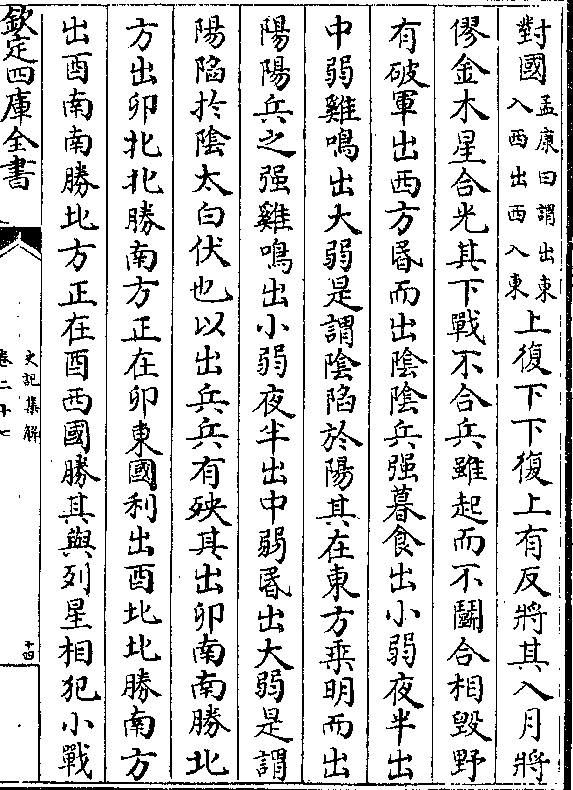 對國孟康曰謂出東入西出西入東上復下下復上有反將其入月將
僇金木星合光其下戰不合兵雖起而不鬭合相毁野
有破軍出西方昏而出陰陰兵强暮食出小弱夜半出
中弱雞鳴出大弱是謂陰陷於陽其在東方乘明而出
陽陽兵之强雞鳴出小弱夜半出中弱昏出大弱是謂
陽陷扵陰太白伏也以出兵兵有殃其出卯南南勝北
方出卯北北勝南方正在卯東國利出酉北北勝南方
出酉南南勝北方正在酉西國勝其與列星相犯小戰
欽定四庫全書
史記集解
卷二十七
十四